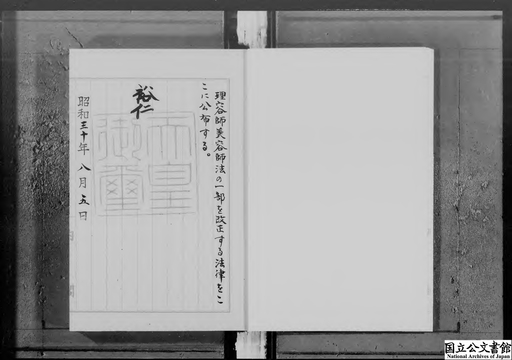 理容師美容師法の一部を改正する法律をこ
こに公布する。
裕仁
天皇
御璽
昭和三十年八月五日
国立公文書館
National Archives of Japan